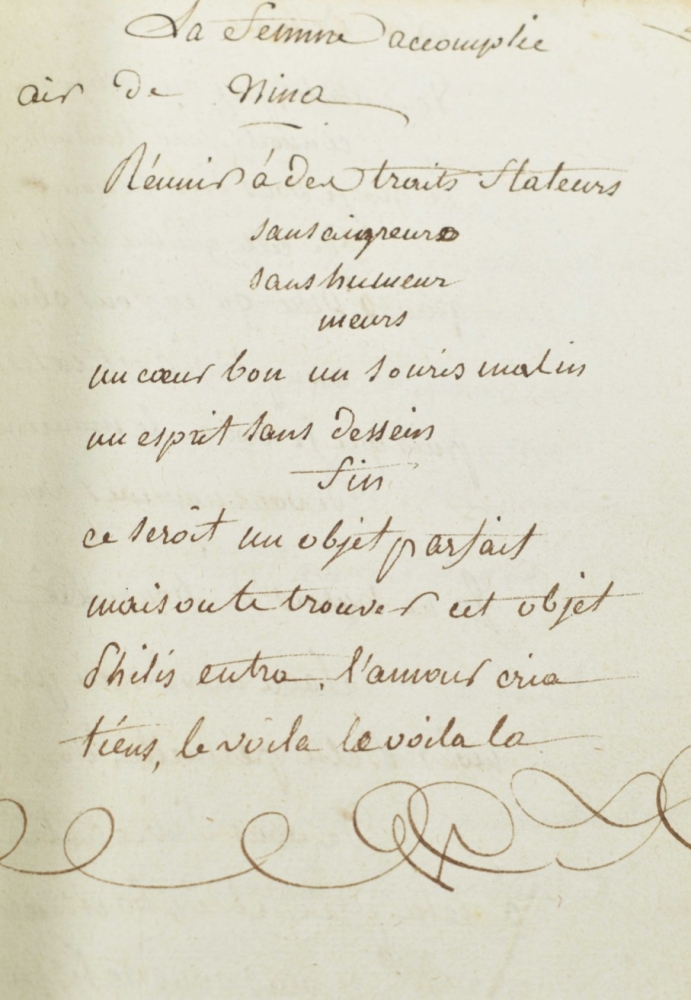 La femme accomplie
air de Nina
Réunir à des traits flateurs
sans aigreur
sans humeur
meurs
un cœur bon un souris malin
un esprit sans dessein
fin
ce seroit un objet parfait
mais ou le trouver cet objet
Philis entra. l'amour cria
tiens, le voila le voila la